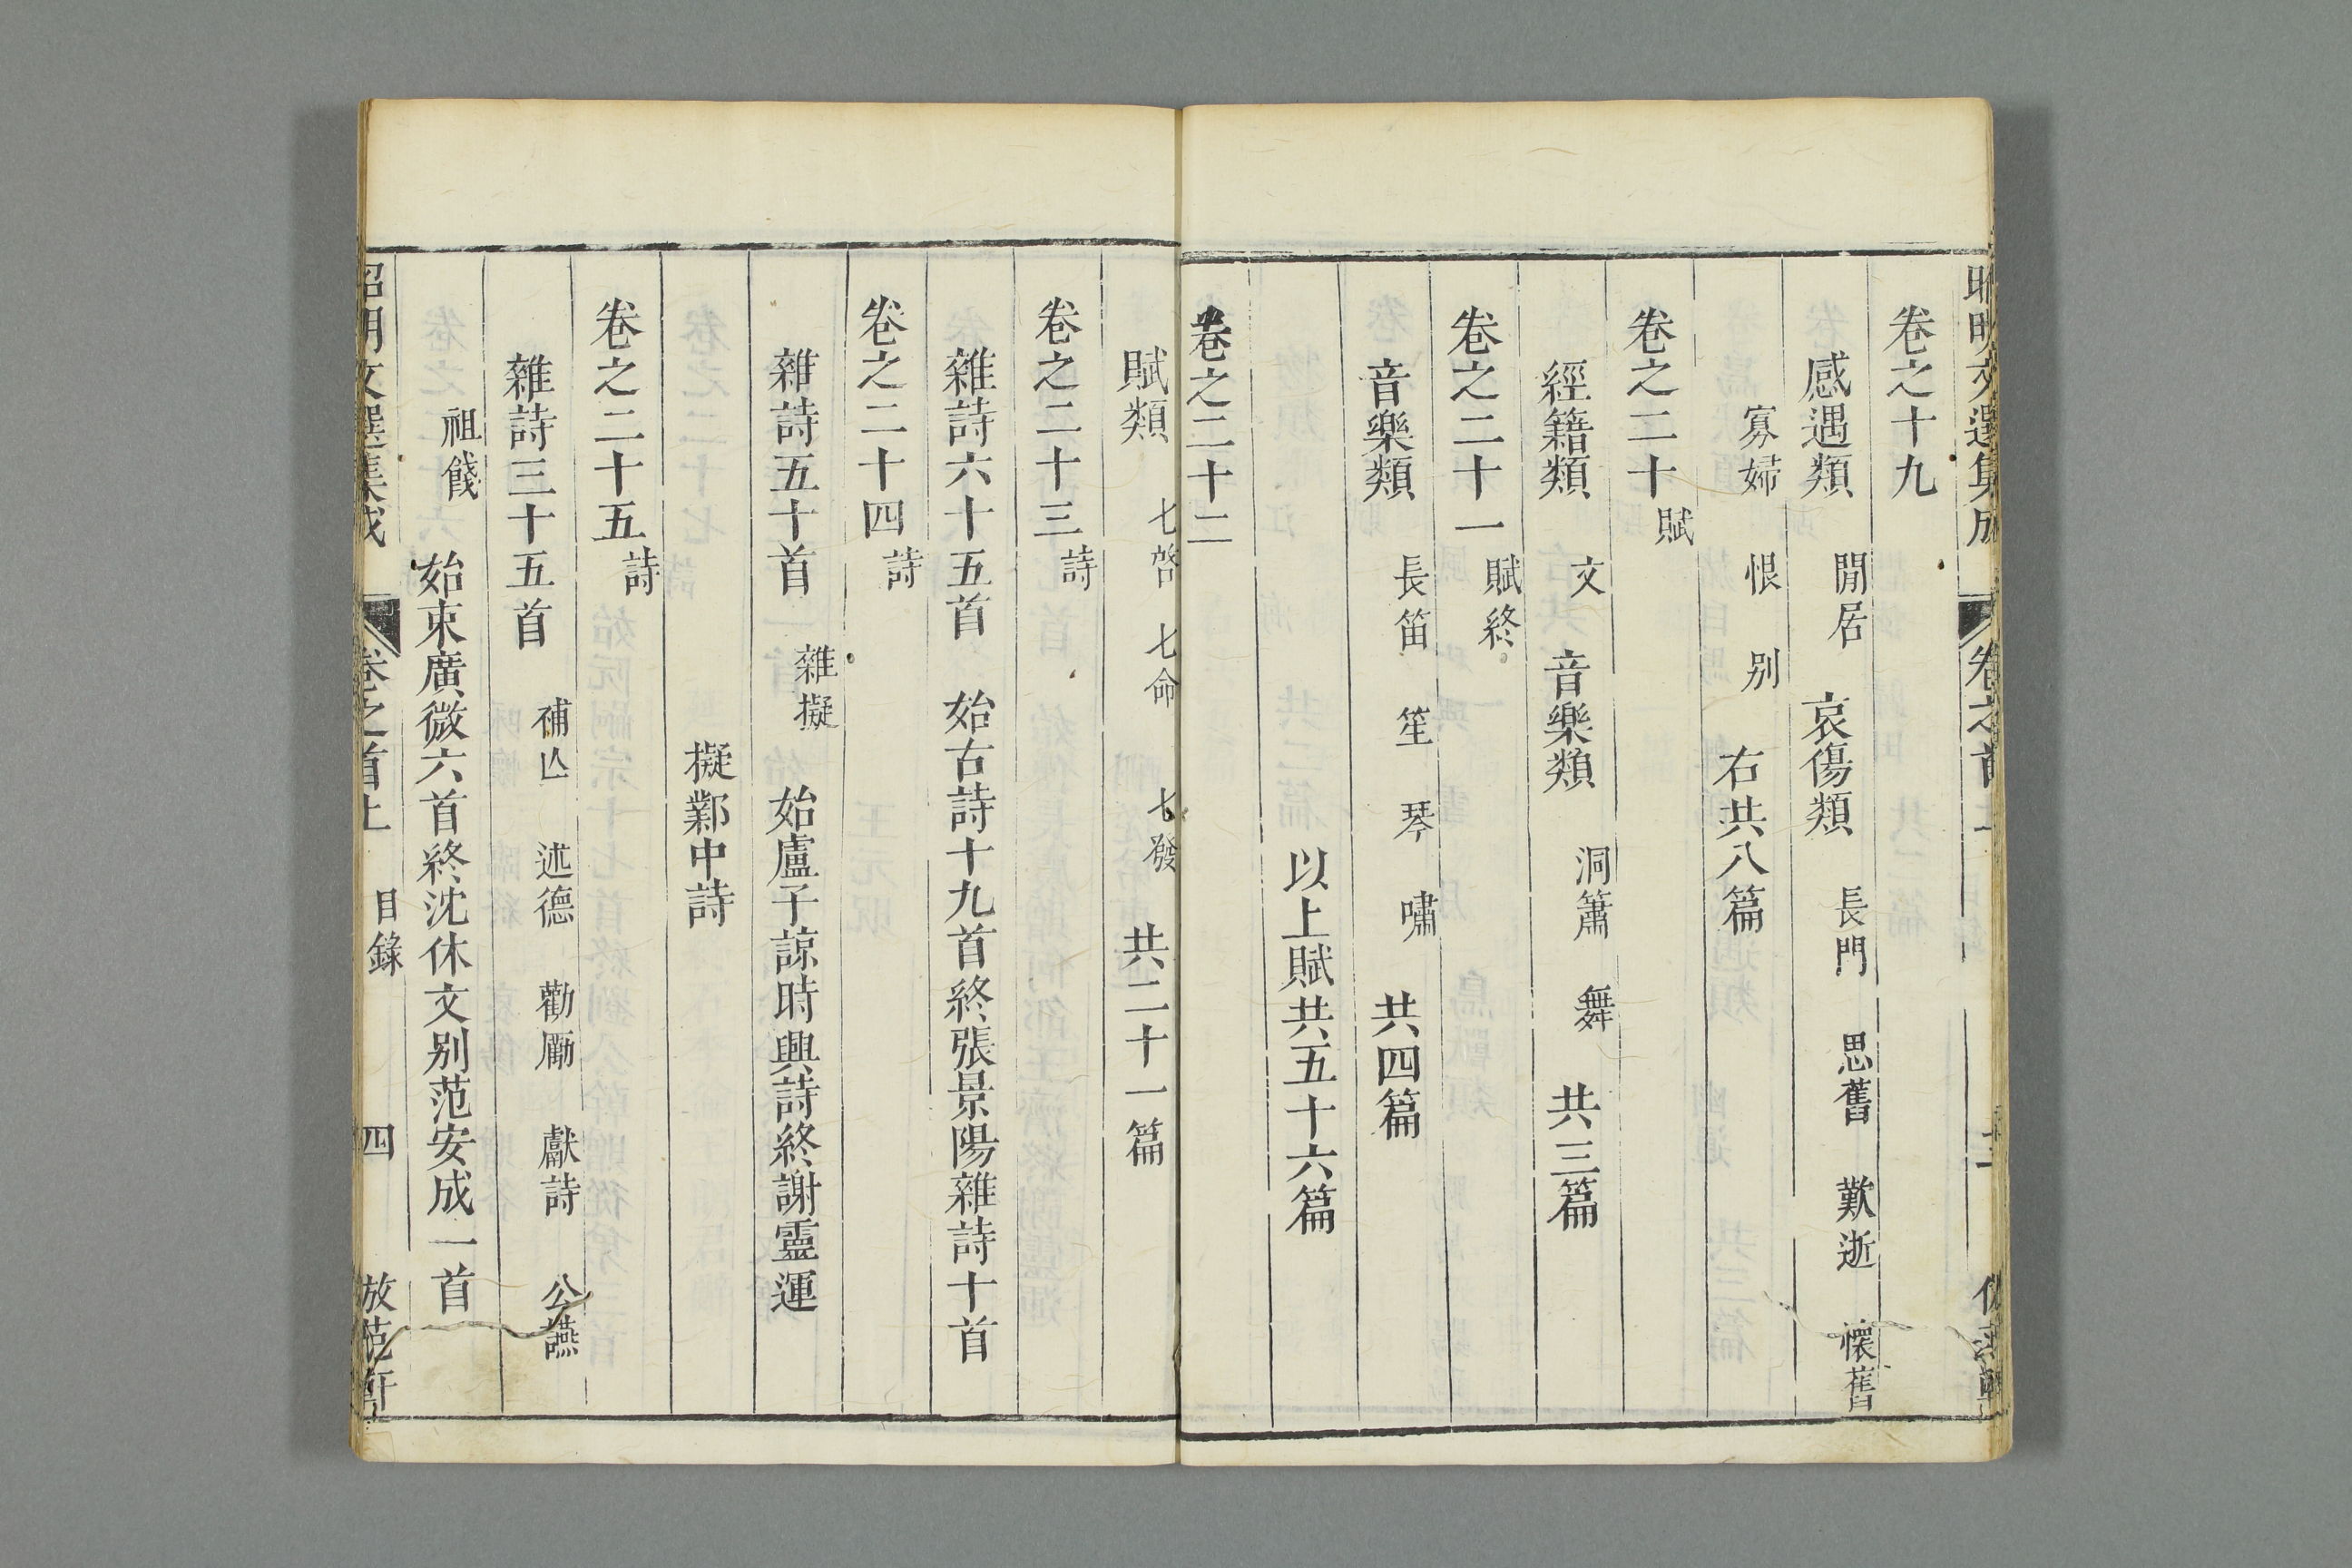 昭明文選集成 卷之首上
卷之十九
感遇類 閒居 哀傷類 長門 思舊 歎逝 懷舊
寡婦 恨 别 右共八篇
卷之二十 賦
經籍類 文 音樂類 洞簫 舞 共三篇
卷之二十一 賦終
音樂類 長笛 笙 琴 嘯 共四篇
以上賦共五十六篇
卷之二十二
賦類 七啓 七命 七發 共二十一篇
卷之二十三 詩
雜詩六十五首 始古詩十九首終張景陽雜詩十首
卷之二十四 詩
雜詩五十首 雜擬 始盧子諒時興詩終謝靈運
擬鄴中詩
卷之二十五 詩
雜詩三十五首 補亾 述德 勸勵 獻詩 公讌
祖餞 始束廣微六首終沈休文别范安成一首
昭明文選集成 卷之首上 目錄 四 放范軒